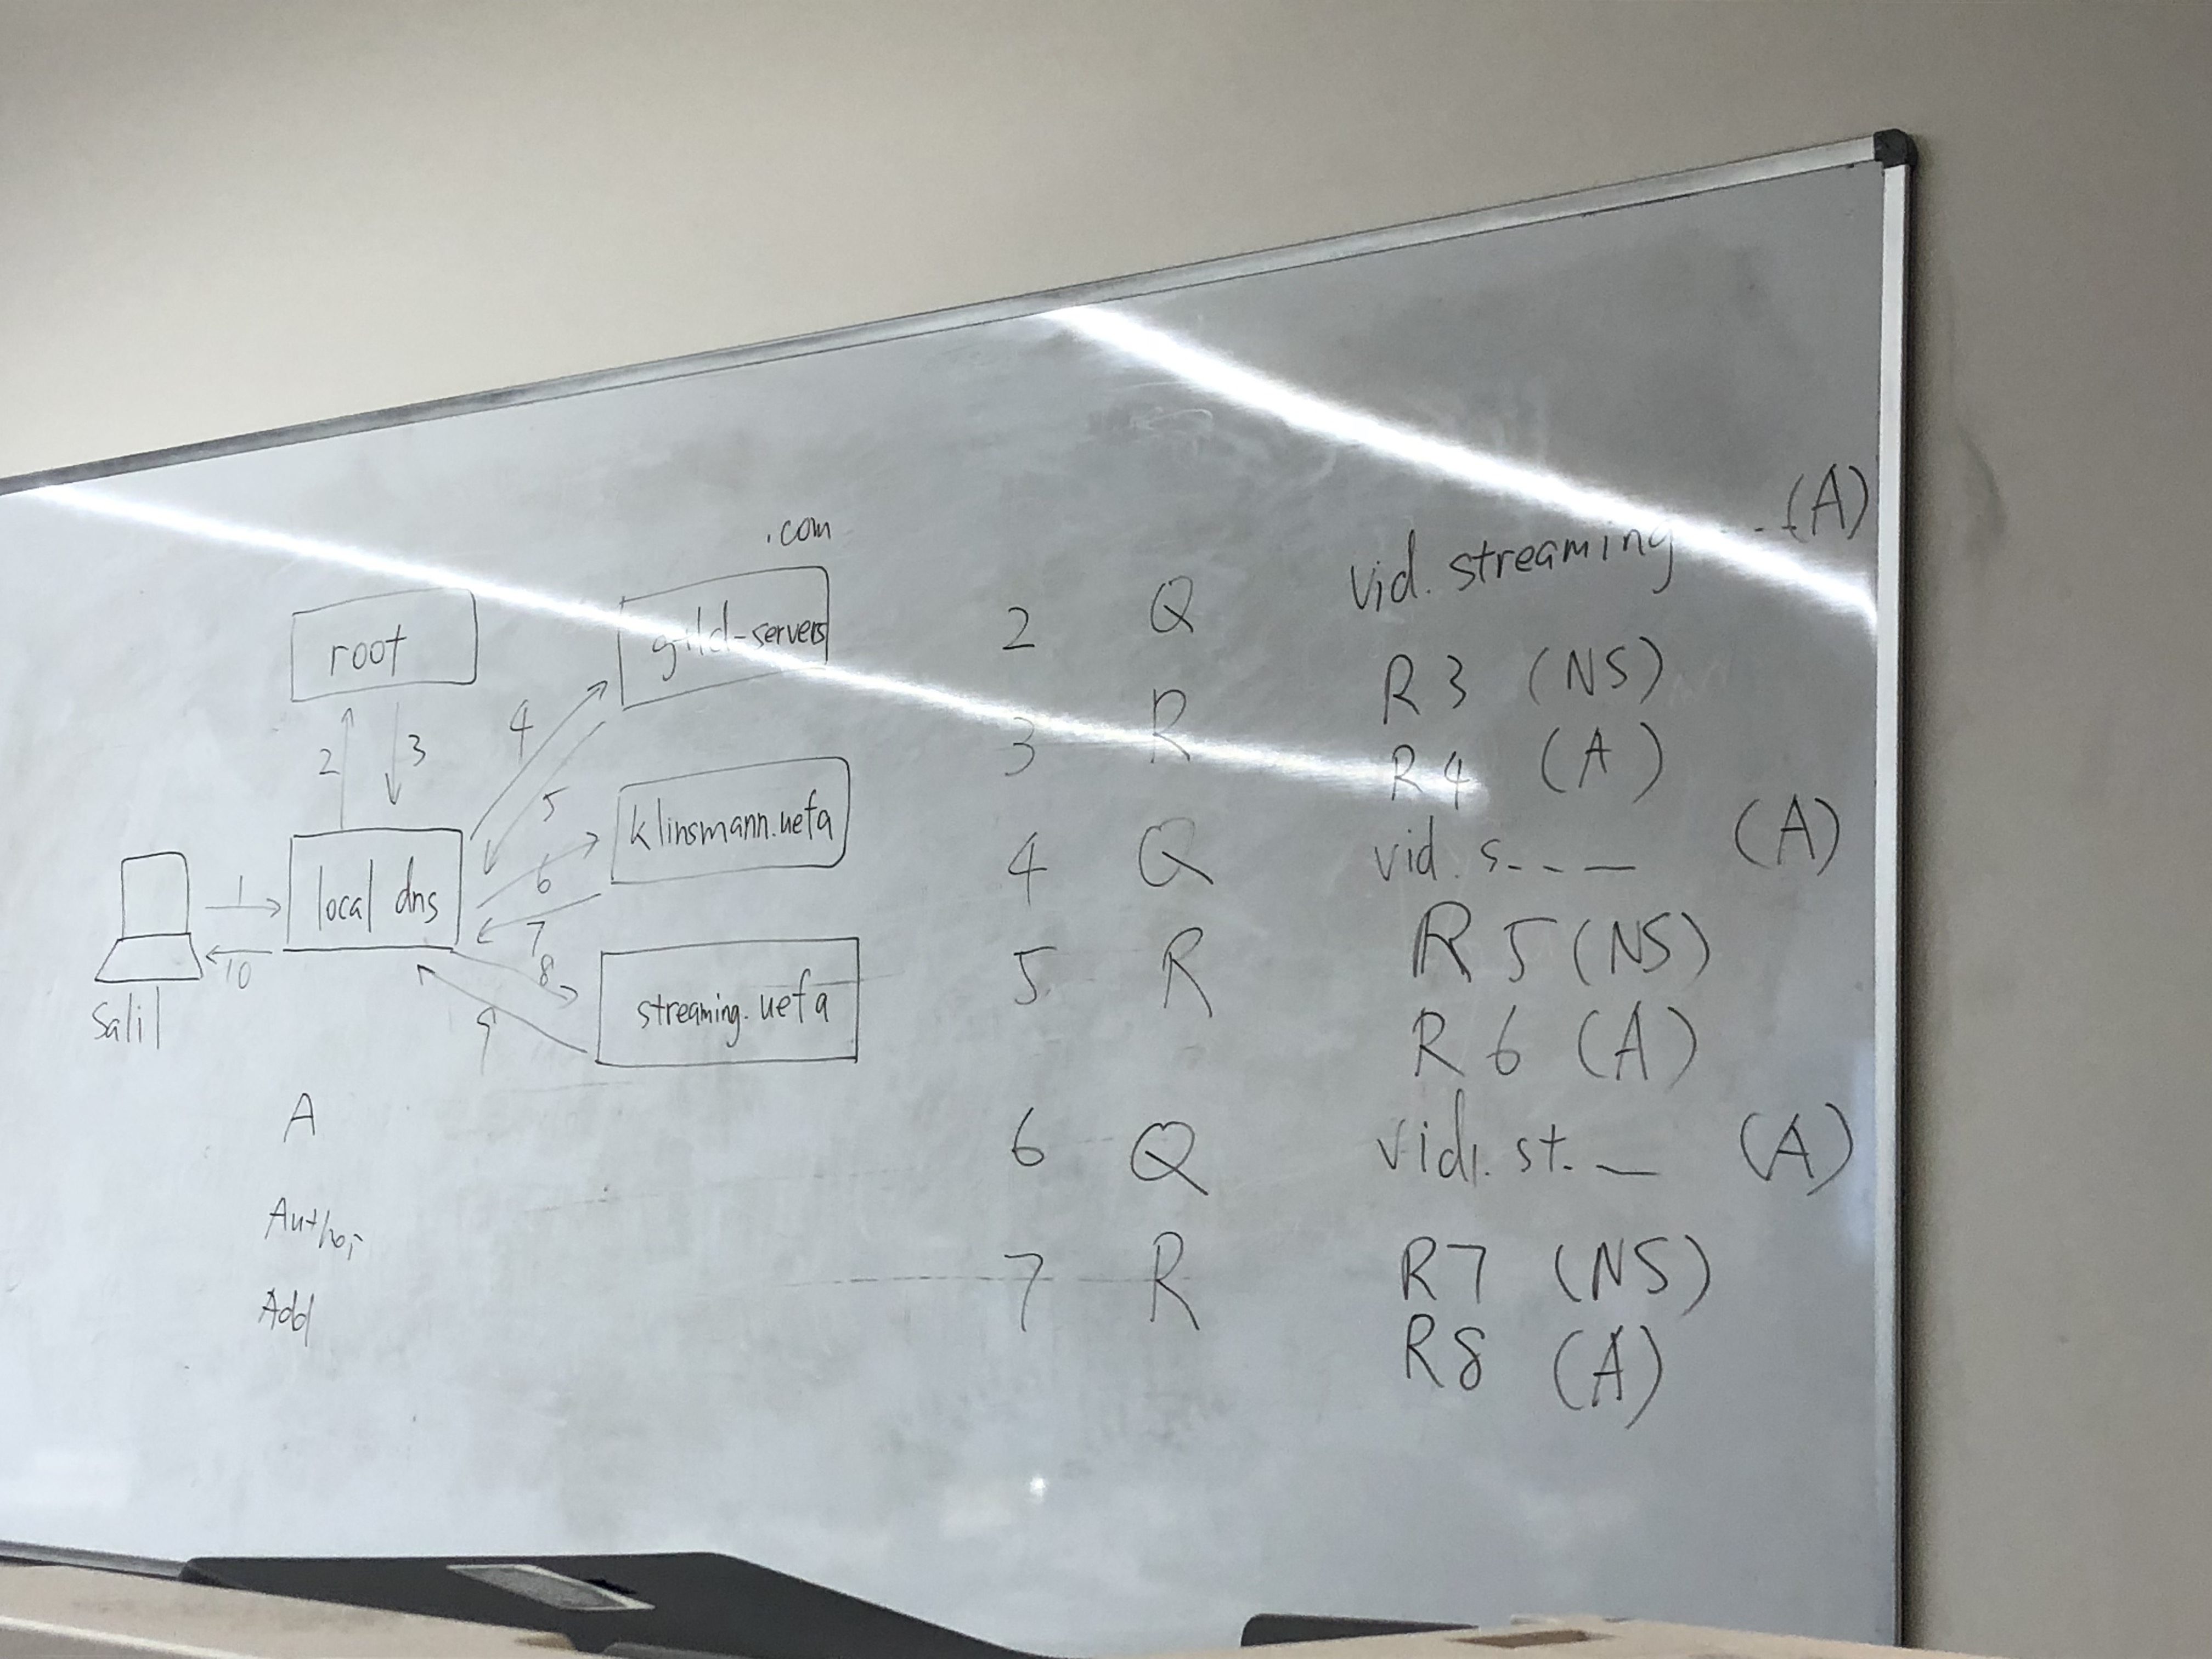 .com
root
gtld-servers
2
3
4
5
klinsmann.uefa
6
local dns
1
7
10
8
streaming.uefa
9
Salil
A
Author
Add
2 Q vid. streaming --- (A)
3 R R3 (NS)
R4 (A)
4 Q vid. s. - - — (A)
5 R R5 (NS)
R6 (A)
6 Q vid. st. - — (A)
7 R R7 (NS)
R8 (A)